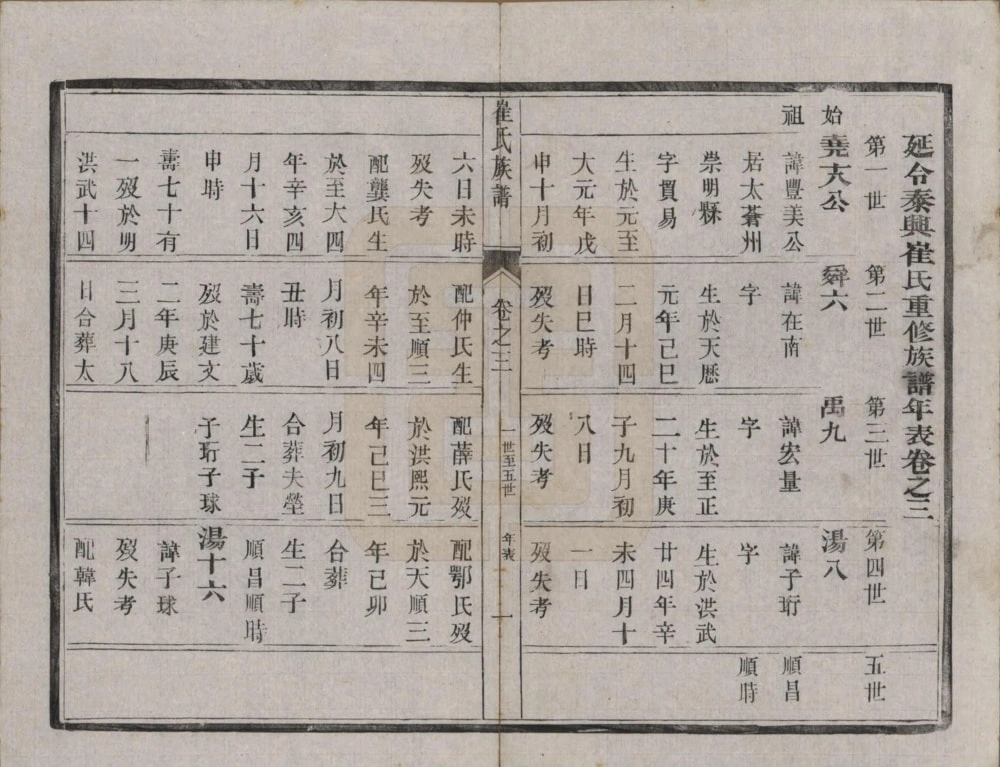 延令泰興崔氏重修族譜年表卷之三
第一世
第二世
第三世
第四世
五世
始
祖
堯大公
諱豐美公
居太蒼州
崇明縣
字貿易
生於元至
大元年戊
申十月初
六日未時
歿失考
配龔氏生
於至大四
年辛亥四
月十六日
申時
壽七十有
一歿於明
洪武十四
舜六
諱在南
字
生於天歷
元年己巳
二月十四
日巳時
歿失考
配仲氏生
於至順三
年辛未四
月初八日
丑時
壽七十歲
歿於建文
二年庚辰
三月十八
日合葬太
禹九
諱宏量
字
生於至正
二十年庚
子九月初
八日
歿失考
配薛氏歿
於洪熙元
年己巳三
月初九日
合葬夫塋
生二子
子珩子球
湯八
諱子珩
字
生於洪武
廿四年辛
未四月十
一日
歿失考
配鄂氏歿
於天順三
年己卯
合葬
生二子
順昌順時
湯十六
諱子球
歿失考
配韓氏
順昌
順時
崔氏族譜
卷之三
一世至五世
年表
一